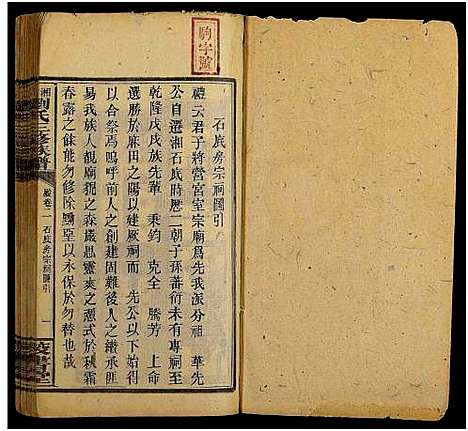 駒字號
石底房宗祠圖引
禮云君子將營宮室宗廟為先我派分祖　華先
公自遷湘石底時歷二朝子孫蕃衍未有專祠至
乾隆戊戌族先輩　秉鈞　克全　騰芳　上命
選勝於麻田之域以建厥祠而　先公以下始得
以合祭焉嗚呼前人之創建固難後人之繼承匪
易我族人覩廟貌之森嚴思靈爽之憑式於秋霜
春露之餘能勿修除黝堊以永保於勿替也哉
湘劉氏三修族譜
卷一　石底房宗祠圖引　一